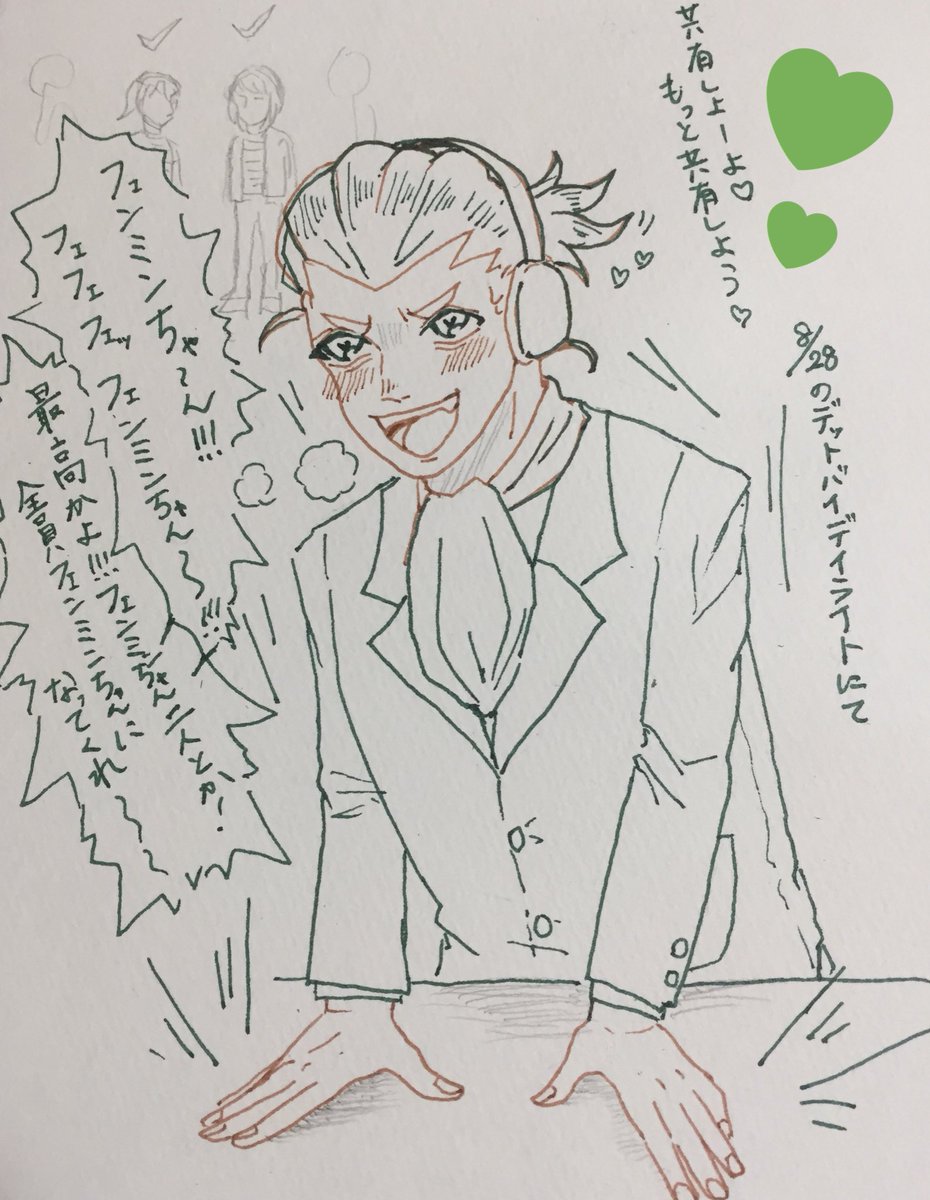 共有しよーよ♡
もっと共有しよう♡
8/28のデットバイデイライトにて
フェンミンちゃ〜ん!!!
フェフェフェッ フェンミンちゃん〜!!!
最高かよ!!!フェンミンちゃん2人とか!
全員フェンミンちゃんに
なってくれ〜〜